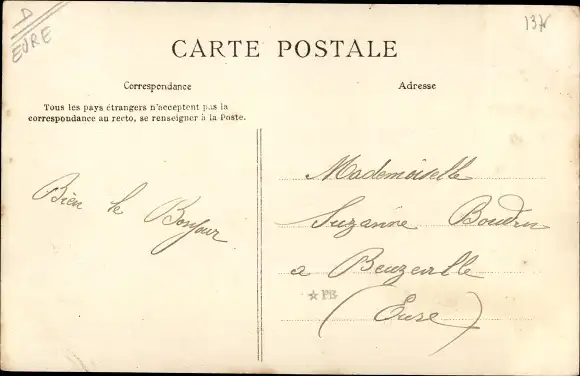 D
EURE
137
CARTE POSTALE
Correspondance
Tous les pays étrangers n'acceptent pas la
correspondance au recto, se renseigner à la Poste.
Bien le Bonjour
Adresse
Mademoiselle
Suzanne
a Beuzeville
(Eure)
★ PB